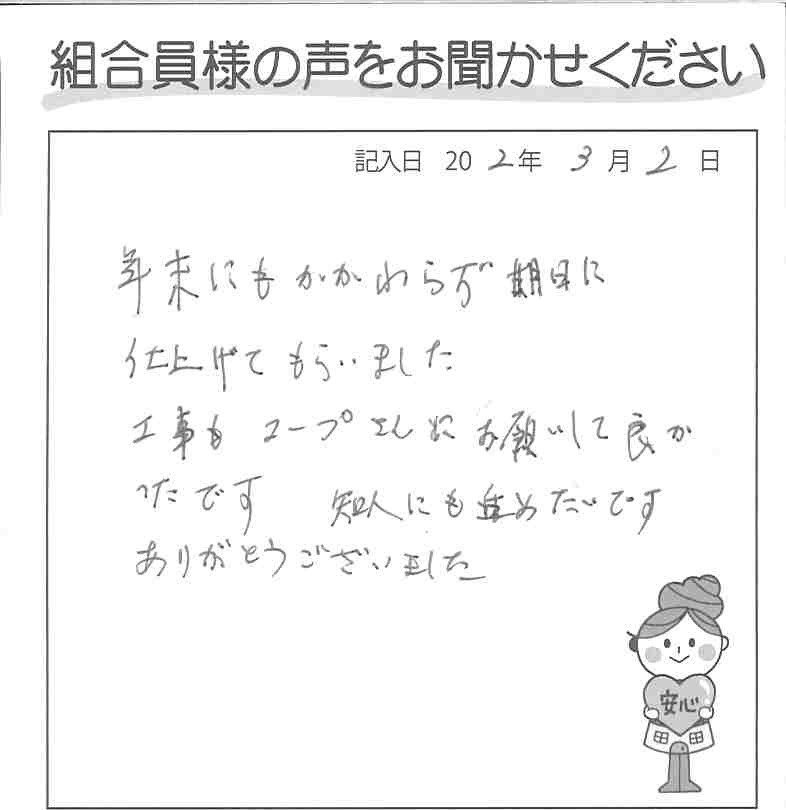 組合員様の声をお聞かせください
記入日 20 2年 3月 2日
年末にもかかわらず 期日に
仕上げてもらいました
工事も コープさんに お願いして良か
ったです 知人にも進めたいです
ありがとうございました
安心